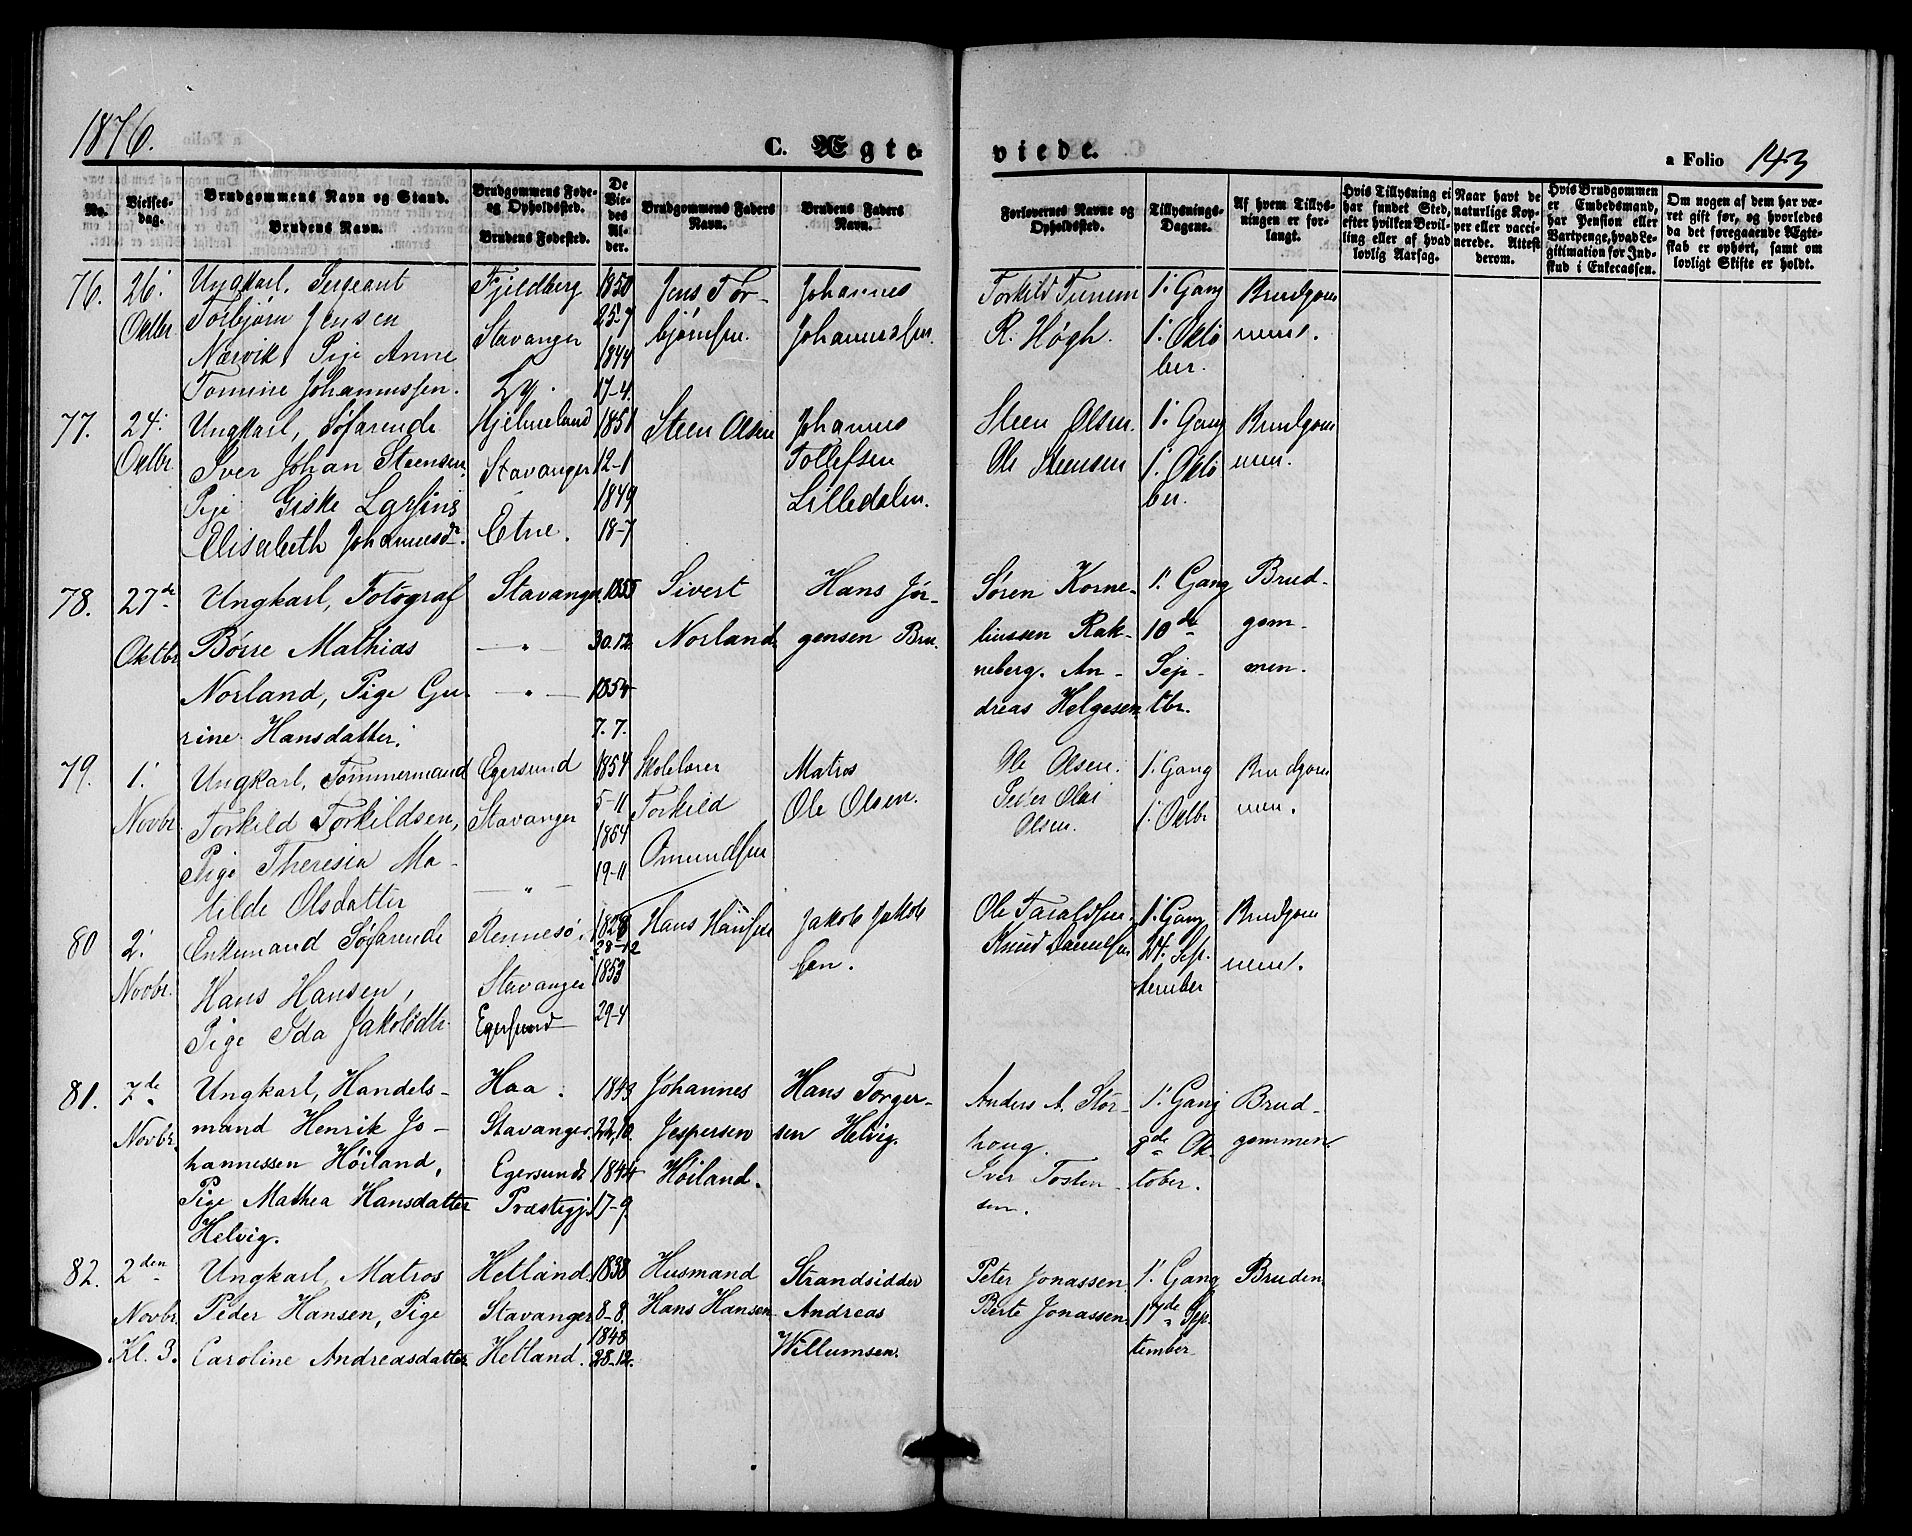 1876.
C. Ægte-
viede.
a Folio 143
No.
Vielses-
dag.
Brudgommens Navn og Stand.
Brudens Navn.
Brudgommens Føde-
og Opholdssted.
Brudens Fødested.
De
Vie-
des
Al-
der.
Brudgommens Faders
Navn.
Brudens Faders
Navn.
Forlovernes Navne og
Opholdssted.
Tillysnings-
Dagene.
Af hvem Tillys-
ningen er for-
langt.
Hvis Tillysning ei
har fundet Sted,
efter hvilken Bevil-
ling eller af hvad
lovlig Aarsag.
Naar havt de
naturlige Kop-
per eller vacci-
nerede. Attest
derom.
Hvis Brudgommen
er Embedsmand,
har Pension eller
Vartpenge, hvad Le-
gitimation for Ind-
skud i Enkecassen.
Om nogen af dem har væ-
ret gift før, og hvorledes
da det foregaaende Ægte-
skab er ophørt, samt om
lovligt Skifte er holdt.
76.
26.
Oktbr
Ungkarl, Sergeant
Torbjørn Jensen
Nærvik, Pige Anne
Tomine Johannessen.
Fjeldberg
Stavanger
1850
25-7
1844
17-4.
Jens Tor-
bjørnsen.
Johannes
Johannessen.
Torkild Tunem
R. Høgh.
1. Gang
1. Okto
ber.
Brudgom
men.
77.
24.
Oktbr
Ungkarl, Søfarende
Iver Johan Steensen
Pige Giske Larsine
Elisabeth Johannesd.
Hjelmeland
Stavanger
Etne.
1851
12-1
1849
18-7
Steen Olsen
Johannes
Tollefsen
Lilledalen.
Steen Olsen.
Ole Steensen
1. Gang
1. Okto
ber.
Brudgom
men.
78.
27de
Oktbr
Ungkarl, Fotograf
Børre Mathias
Norland, Pige Gu-
rine Hansdatter.
Stavanger.
— " —
— " —
1855
30.12
1854
7.7.
Sivert
Norland
Hans Jør-
gensen Bru.
Søren Korne-
liussen Rak-
neberg. An-
dreas Helgesen
1. Gang
10de
Sep-
tbr.
Brud-
gom-
men.
79.
1.
Novbr
Ungkarl, Tømmermand
Torkild Torkildsen,
Pige Theresia Ma-
tilde Olsdatter
Egersund
Stavanger
— " —
1854
5-11
1854
19-11
Skolelærer
Torkild
Omundsen
Matros
Ole Olsen.
Ole Olsen.
Peder Olai
Olsen.
1. Gang
1. Oktbr
Brudgom
men.
80
2.
Novbr.
Enkemand Søfarende
Hans Hansen,
Pige Ida Jakobdtr.
Rennesø.
Stavanger
Egersund
1828
28-12
1853
29-4
Hans Hansen
Jakob Jakob
sen.
Ole Taraldsen.
Knud Danielsen
1. Gang
24. Sep-
tember
Brudgom
men.
81.
7de
Novbr.
Ungkarl, Handels-
mand Henrik Jo-
hannessen Höiland,
Pige Mathea Hansdatter
Helvig.
Haa.
Stavanger.
Egersunds
Præstegj.
1843
22.10.
1844
17-9.
Johannes
Jespersen
Höiland.
Hans Torger-
sen Helvig.
Anders A. Stør-
houg.
Iver Tosten-
sen.
1. Gang
8de Ok-
tober.
Brud-
gommen
82.
2den
Novbr
Kl. 3.
Ungkarl, Matros
Peder Hansen, Pige
Caroline Andreasdatter
Hetland.
Stavanger
Hetland.
1838
8-8.
1848
28-12.
Husmand
Hans Hansen
Strandsidder
Andreas
Willumsen.
Peter Jonassen.
Berte Jonassen.
1. Gang
17de Sep-
tember
Bruden